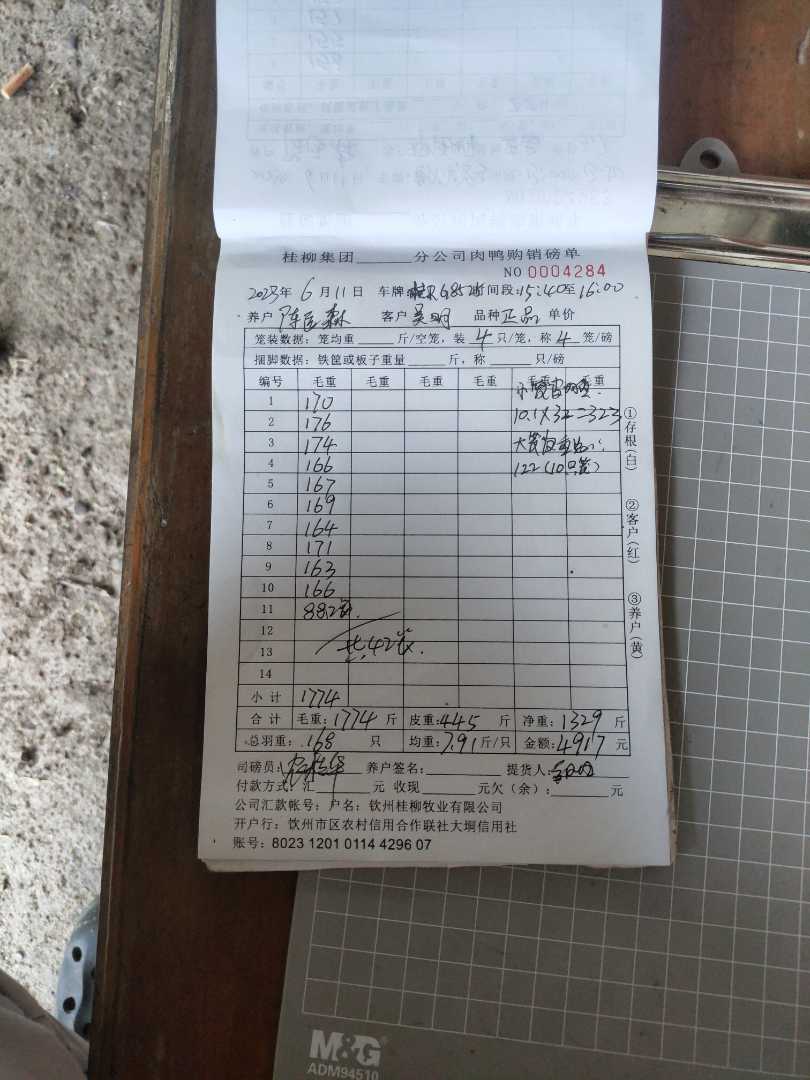 桂柳集团______分公司肉鸭购销磅单
NO 0004284
2023年 6 月 11 日 车牌 时间段:15:40至16:00
养户 客户 吴明 品种 正品 单价
笼装数据: 笼均重 ____ 斤/空笼, 装 4 只/笼, 称 4 笼/磅
捆脚数据: 铁筐或板子重量 ____ 斤, 称 ____ 只/磅
编号 毛重 毛重 毛重 毛重 毛重 毛重
1 170
2 176 10.1×32=323
3 174
4 166 122(10只笼)
5 167
6 169
7 164
8 171
9 163
10 166
11 88.2笼.
12
13 共42笼.
14
小计 1774
合计 毛重: 1774 斤 皮重: 445 斤 净重: 1329 斤
总羽重: 168 只 均重: 7.91 斤/只 金额: 4917 元
司磅员: 养户签名: 提货人:
付款方式: 汇______元 收现______元欠(余): ______元
公司汇款帐号: 户名: 钦州桂柳牧业有限公司
开户行: 钦州市区农村信用合作联社大垌信用社
账号: 8023 1201 0114 4296 07
①存根(白)
②客户(红)
③养户(黄)
M&G
ADM94510